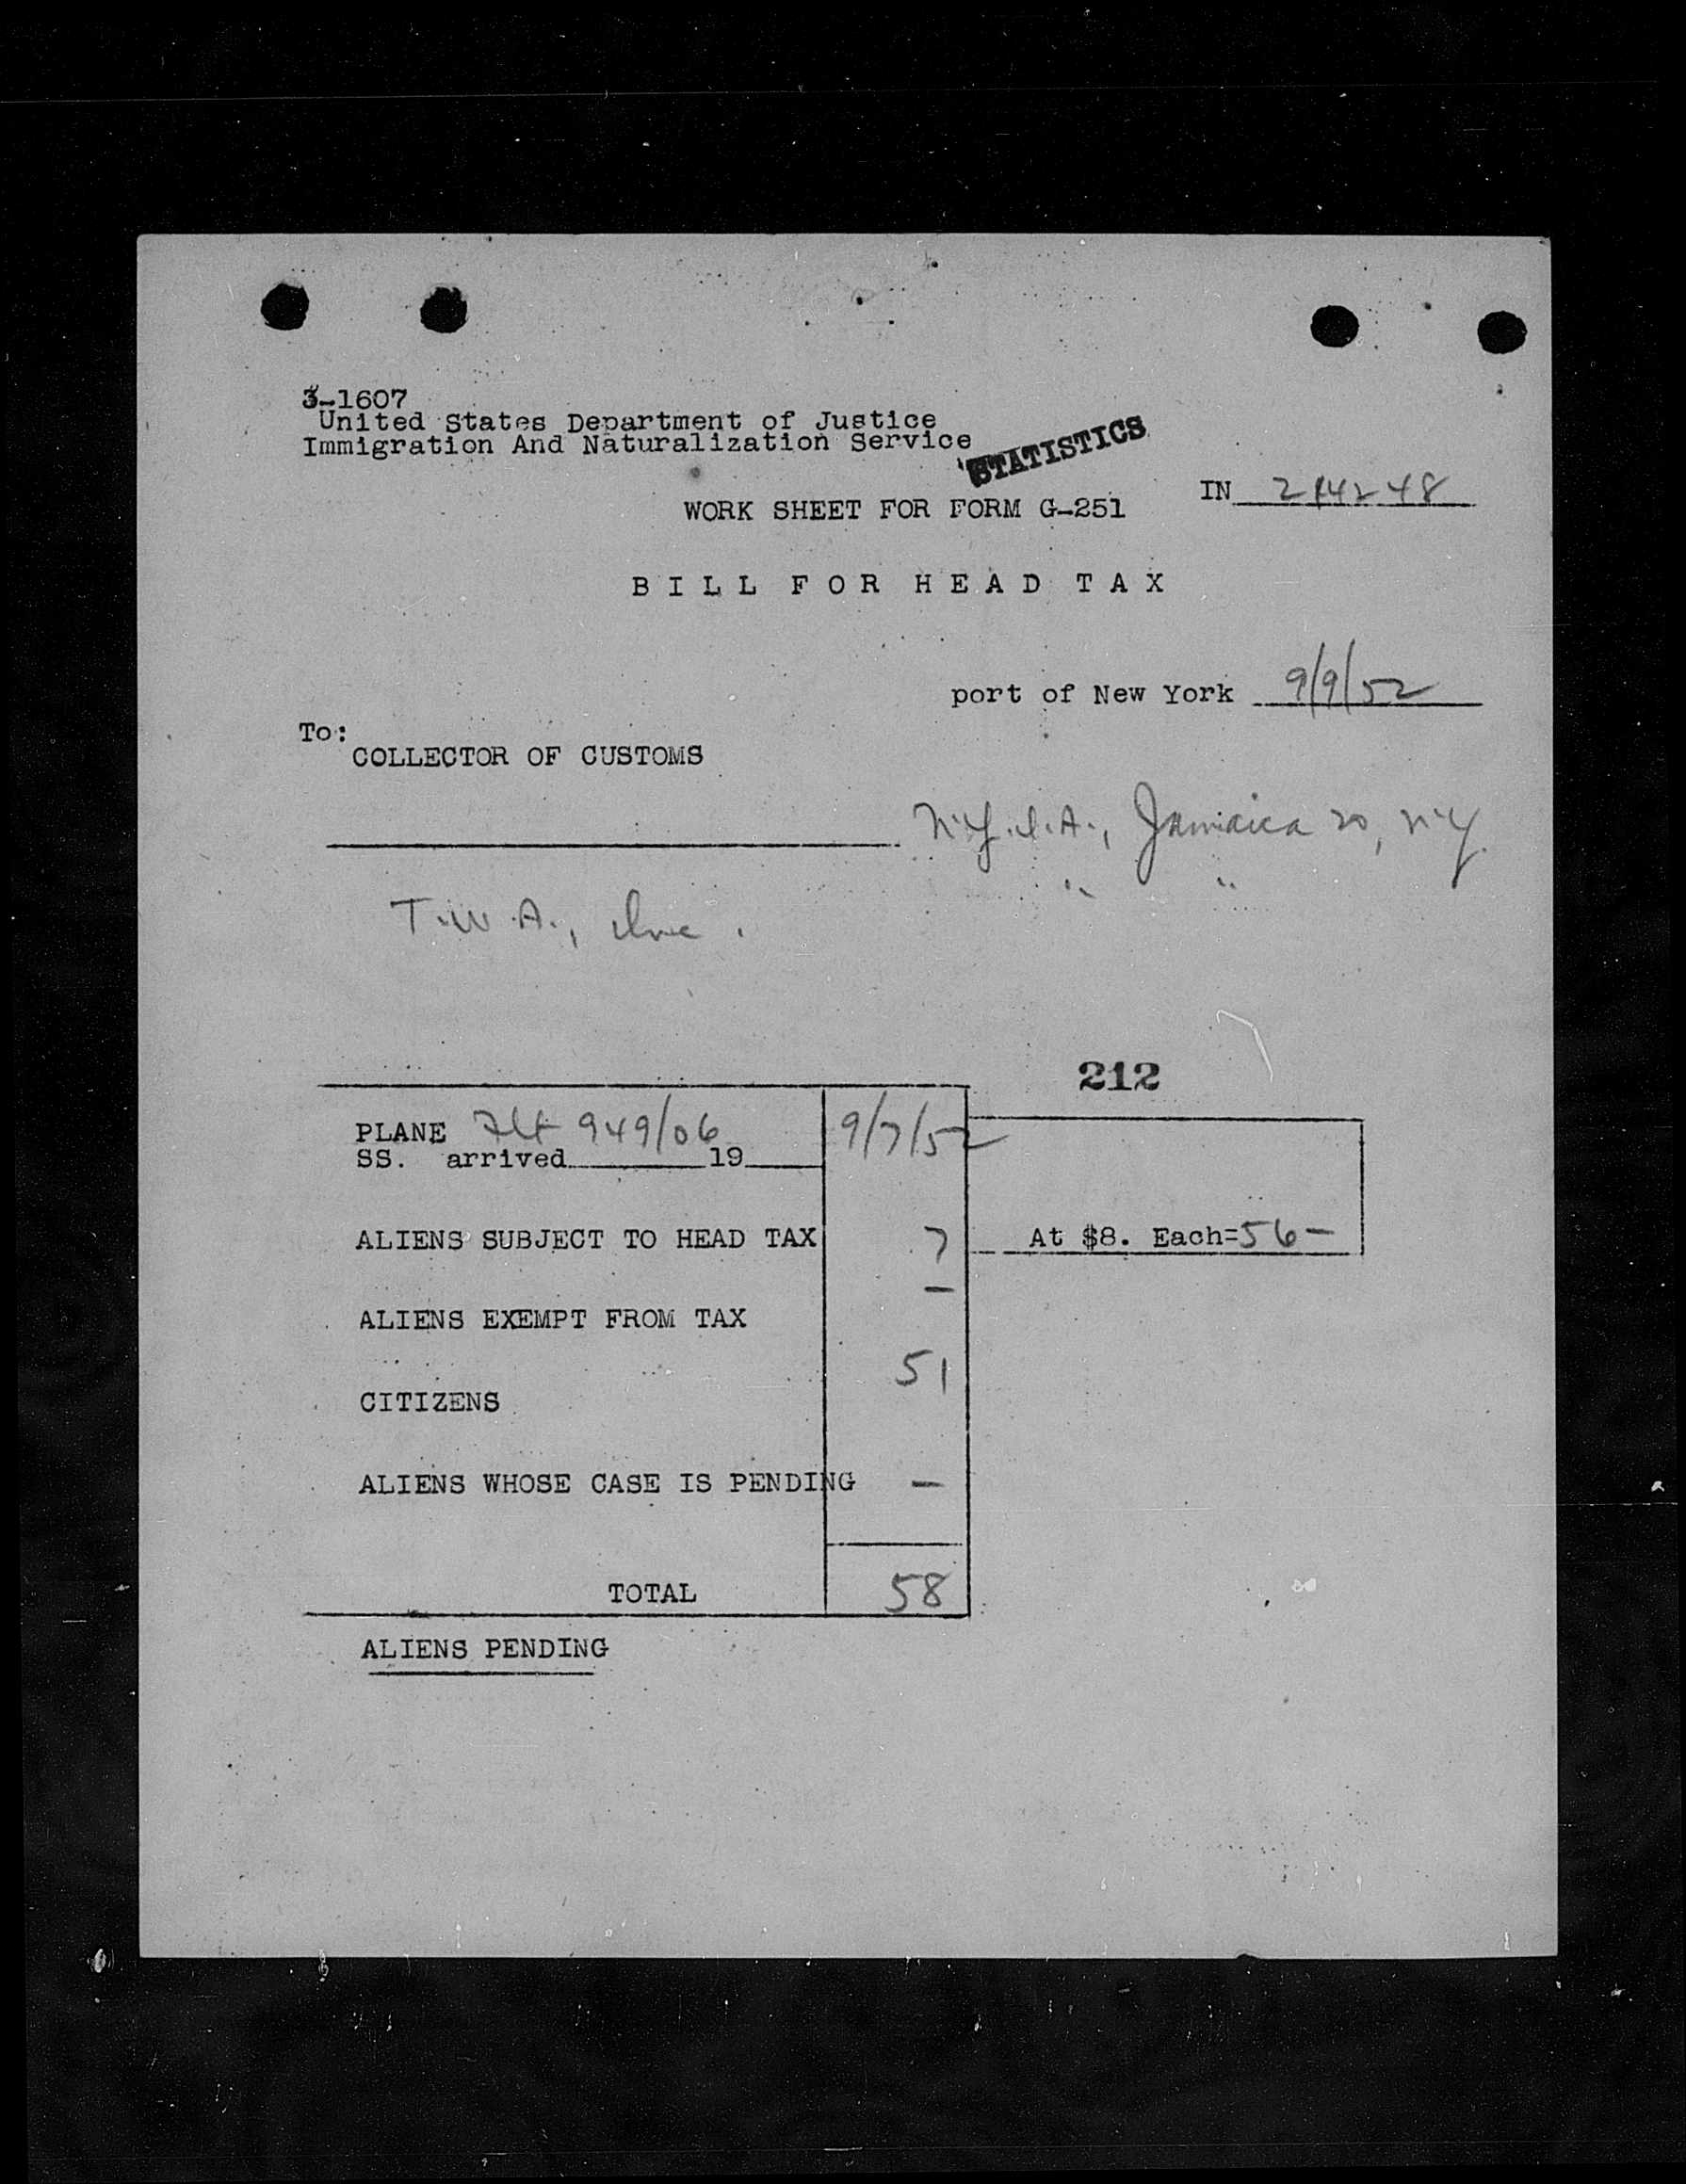 3-1607
United States Department of Justice
Immigration And Naturalization Service
STATISTICS
WORK SHEET FOR FORM G-251
IN 214248
BILL FOR HEAD TAX
port of New York 9/9/52
To:
COLLECTOR OF CUSTOMS
N.Y.I.A., Jamaica 20, N.Y.
" "
T.W.A., Inc.
212
PLANE Flt 949/06 9/7/52
SS. arrived 19
ALIENS SUBJECT TO HEAD TAX 7 At $8. Each=56-
-
ALIENS EXEMPT FROM TAX
51
CITIZENS
ALIENS WHOSE CASE IS PENDING -
TOTAL 58
ALIENS PENDING